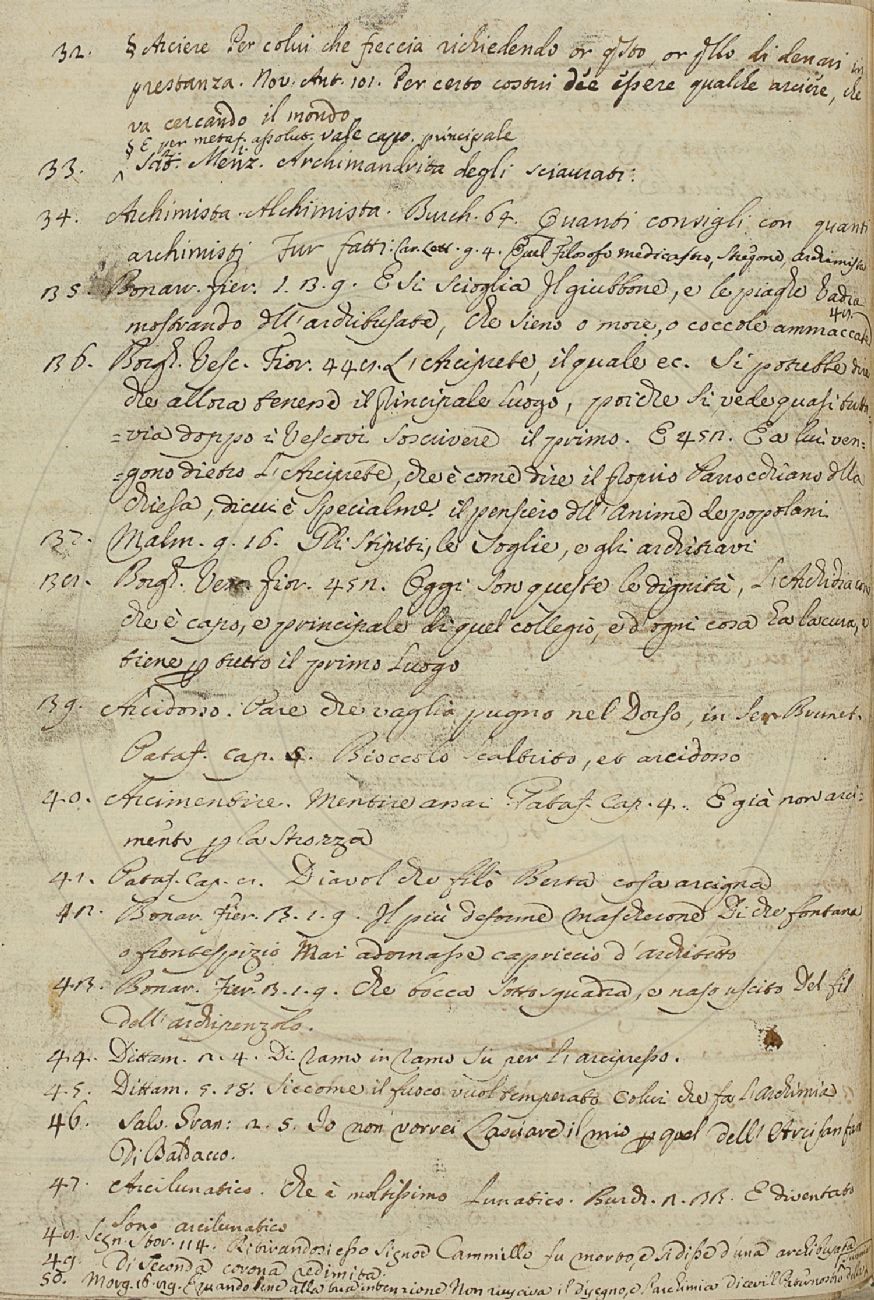 32. § Arciere Per colui che freccia richiedendo or qsto, or qllo di denari in
prestanza. Nov. Ant. 101. Per certo costui dèe èssere qualche arciere, che
va cercando il mondo
§ E per metaf. assolut. vale capo, principale
33. Scit. Menz. Archimandrita degli sciaurati.
34. Archimista. Alchimista. Burch. 64. Quanti consigli con quanti
archimisti Fur fatti. Car. Lett. g. 4. Quel Filosofo medicastro, stregone, archimista
35. Bonar. Fier. 1. 3. 9. E si scioglia Il giubbone, e le piaghe Vadia
mostrando dll'archibusate, che sieno o more, o coccole ammaccate
48.
36. Borgh. Vesc. Fior. 448. L'Arciprete, il quale ec. Si potrebbe dire
che allora tenesse il principale luogo, poiche si vede quasi tutta=
=via doppo i Vescovi soscrivere il primo. E 452. Ea lui ven=
=gono dietro L'Arciprete, che è come dire il proprio Parrocchiano dlla
chiesa, di cui è specialme. il pensiero dll'Anime de popolani
37. Malm. 9. 16. Gli stipiti, le soglie, e gli architravi
38. Borgh. Vesc. Fior. 452. Oggi son queste le dignità, L'Archidiacono
che è capo, e principale di quel collegio, e d'ogni cosa ha la cura, e
tiene p tutto il primo luogo
39. Arcidosso. Pare che vaglia pugno nel Dosso, in Ser Brunet.
Pataf. Cap. 5. Bioccolo scaltrito, et arcidosso
40. Arcimentire. Mentire assai. Pataf. Cap. 4. E già non arci=
mento p la strozza
41. Pataf. Cap. 8. Diavol che filò Berta cosa arcigna
42. Bonar. Fier. 3. 1. 9. Il più deforme mascherone Di che fontana,
o frontespizio Mai adornasse capriccio d'architetto
43. Bonar. Fier. 3. 1. 9. Che bocca sotto squadra, e naso uscito Del fil
dell'archipenzolo.
44. Dittam. 2. 4. Di ramo in ramo su per l'arcipresso.
45. Dittam. 5. 18. Siccome il fuoco vuol temperato Colui che fa l'archimia
46. Salv. Gran: 2. 5. Io non vorrei Lasciare il mio p quel dell'Arcifanfan
Di Baldacco.
47. Arcilunatico. Che è moltissimo Lunatico. Burch. 2. 33. E diventato
sono arcilunatico
48. Segn. Stor. 114. Ritirandosi esso Signor Cammillo fu morto, e si disse d'una archibusata
49. di seconda corona redimita
50. Morg. 16. 29. E quando bene alla tua intenzione Non riusciva il disegno, e l'archimia Dicevi'l Paternostro